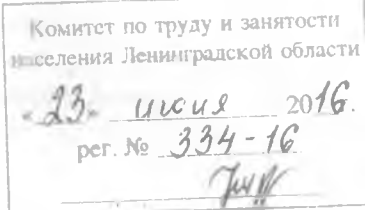 Комитет по труду и занятости
населения Ленинградской области
«23» июня 2016.
рег. № 334-16